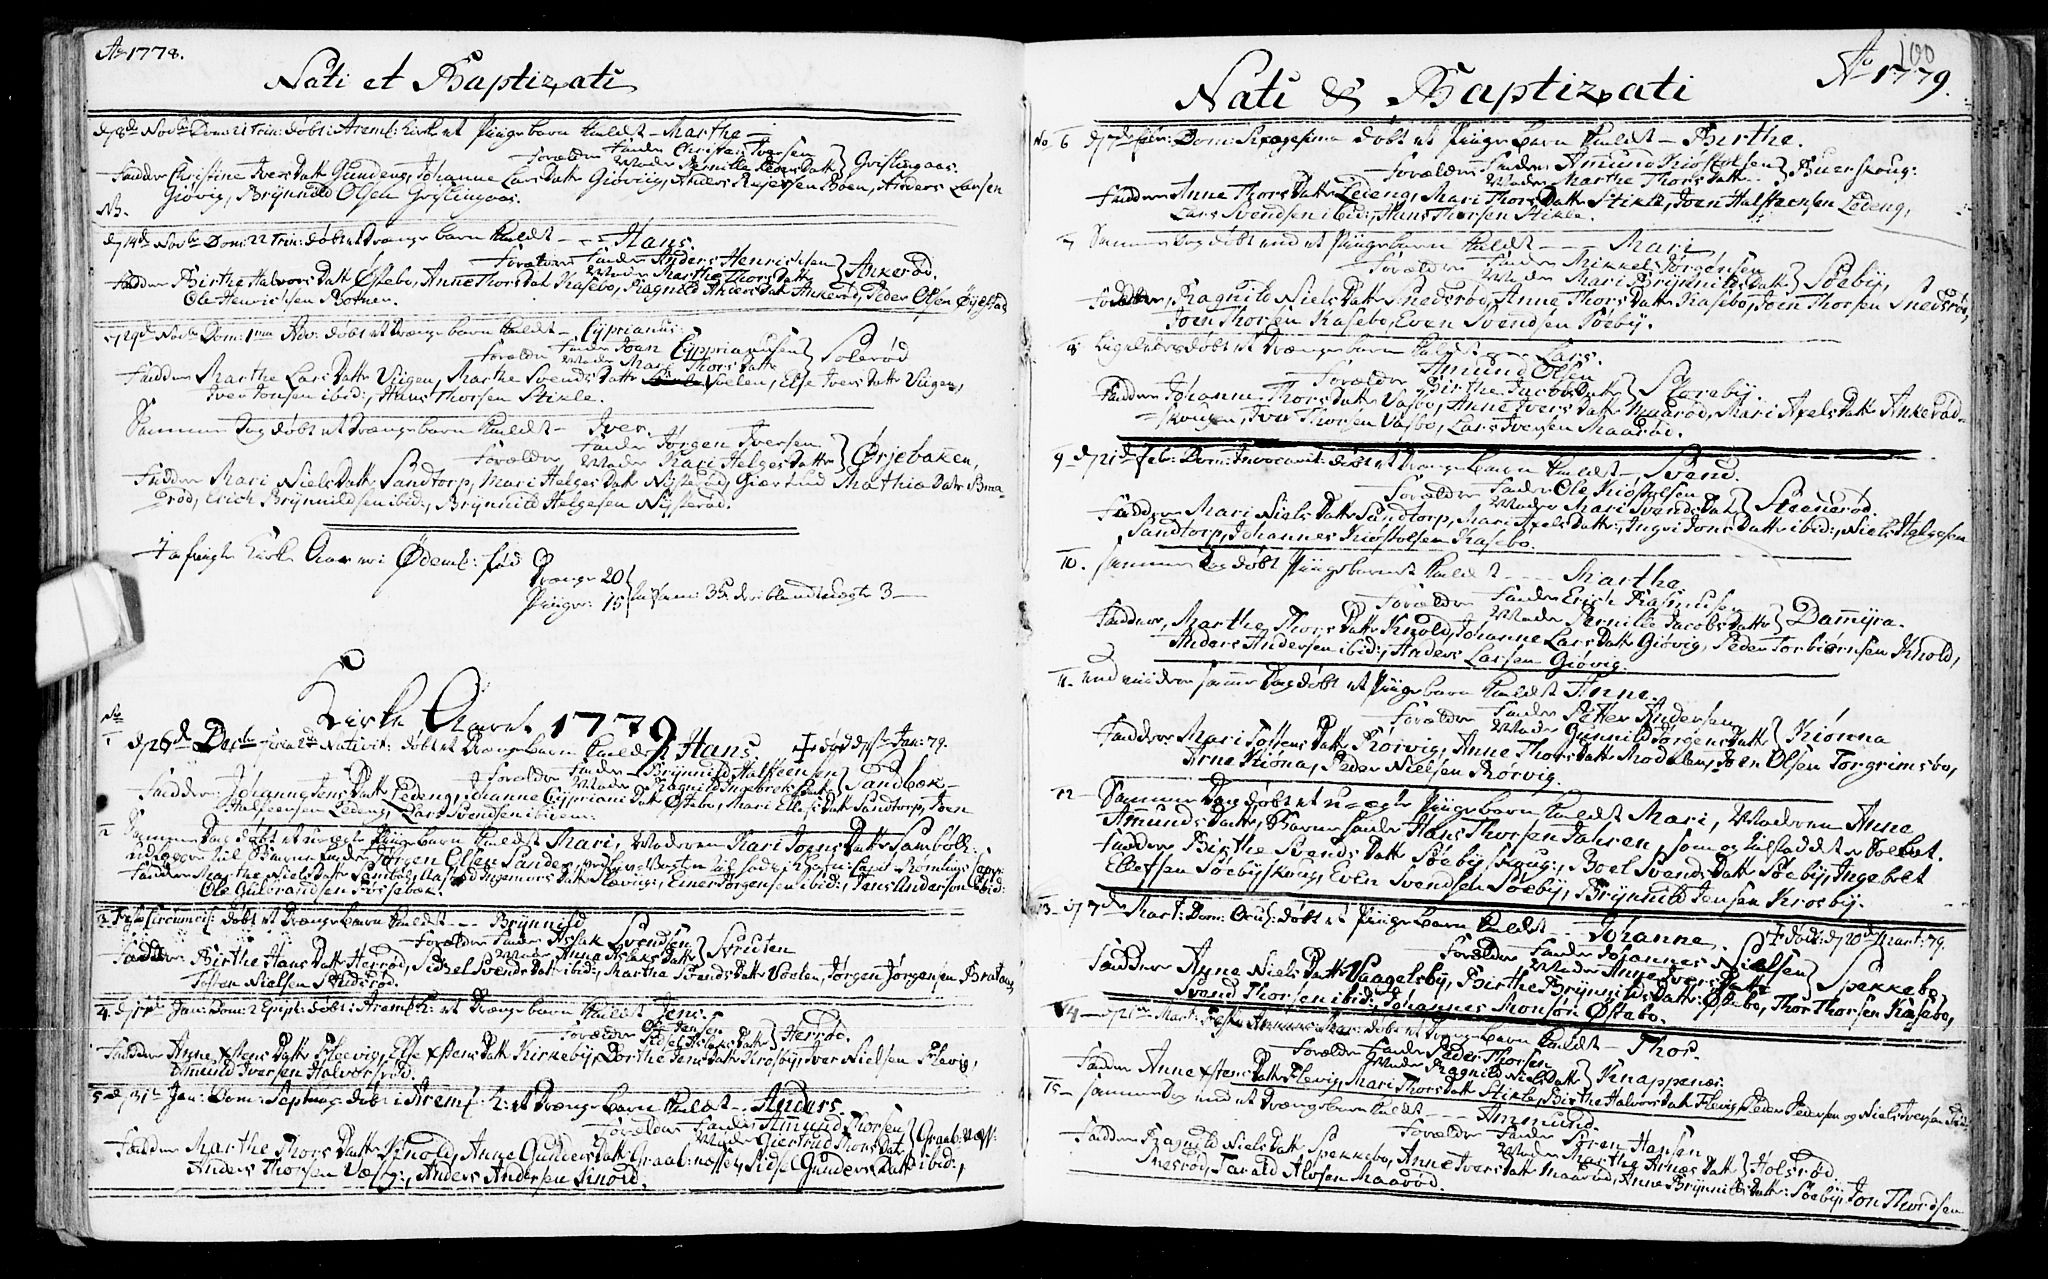 Ao 1778.
Nati et Baptizati
d. 8de Novbr Dom: 21 Trin: døbt i Aremk: Kirke et Pigebarn kaldet - Marthe -
Forældre Fader Christen Iversen
Moder Pernille Peders Datter } Grislingaas.
Faddere Christine Ivers Datt Gunding, Johanne Lars Datt Giøviig, Anders Larsen
Giøvig, Brÿnnild Olsen Grislingaas.
NB.
d. 14de Novbr Dom: 22 Trin: døbt et Drænge barn kaldet - - - Hans.
Forældre Fader Anders Henrichsen
Moder Marthe Thors Datter } Ankerød.
Faddere Birthe Halvors Datt Østebo, Anne Thors Dat Kasebo, Ragnild Anders Dat Ankerød, Peder Olsen Øÿestad
Ole Henrichsen Botner.
d. 29de Novbr Dom: 1ma Adv: døbt et Drænge barn kaldet - Cÿprianus:
Forældre Fader Joen Cÿpprianusen
Moder Mari Thors Datter } Solerød
Faddere Marthe Lars Datt Viigen, Marthe Svends Datt Voelen, Else Ivers Datt Viigen,
Iver Jonsen ibid:, Hans Thorsen Stikle.
Samme Dag døbt et Drænge barn kaldet - Iver,
Forældre Fader Jørgen Iversen
Moder Kari Helges Datter } Ørjebaken,
Faddere Mari Niels Datt Sandtorp, Mari Helges Datt Nÿsterød, Giertrud Mathiæ Datt Bra-
rød, Erich Brÿnnildsen ibid:, Brÿnnild Helgesen Nÿsterød.
I afvigte Kirke Aar er i Ødemk: fød
Drænge 20
Piiger: 15 } tilsam: 35 deriblandt uægte 3 -
Kirke Aaret 1779
No
1 d. 26de Decbr fer: 2da Nativit: døbt et Drænge barn kaldet Hans. død d. Jan: 79.
Forældre Fader Brÿnnild Halsteensen
Moder Ragnild Ingebrets Datt } Sandbæk
Faddere: Johanne Jens Datt Ledeng, Johanne Cÿpriani Datt Østebo, Mari Ellefs Datt Sandtorp, Joen
Halsteensen Ledeng, Lars Svendsen ibidem.
2 Samme Dag døbt et uægte Piigebarn kaldet Mari, Moderen Kari Joens Datt Sambøll:
udlagde til Barne Fader Jørgen Olsen Sander,
Faddere Marthe Niels Datt Ingemoers Datt Flævig:, Einer Jørgensen ibid:, Jens Andersen ibid:
Ole Gulbrandsen Fossebek.
3. Festo Circumcis: døbt et Drænge barn kaldet - - - Brÿnnild
Forældre Fader Assak Svendsen
Moder Anna Aslaks Datter } Struten
Faddere Birthe Hans Datt Herrød, Sidsel Svends Datt ibid:, Marthe Svends Datt Voelen, Jørgen Jørgensen Braten
Tosten Nielsen Studsrød.
4. d. 17de Jan: Dom: 2 Epiph: døbt i Aremk: K: et Drænge barn kaldet Jens.
Forældre Ole Jensen
Sidsel Aslaks Datt } Herrød.
Faddere Anne Xstens Datt Flævig, Else Xstens Datt Kirkebÿ, Dorthe Jens Datt Krosbÿ, Iver Nielsen Flevig,
Amund Iversen Halvorsrød.
5 d. 31te Jan: Dom: Septuag: døbt i Aremk: K: et Drænge barn kaldet - Anders.
Forældre Fader Amund Thorsen
Moder Giertrud Thors Dat } Graal:næss:
Faddere Marthe Thors Datt Knold, Anne Gunders Datt Graal:næsset, Sidsel Gunders Datt ibid:,
Anders Thorsen Næss:, Anders Andersen Knold.
100
Ao 1779.
Nati & Baptizati
No 6 d. 7de Febr: Dom: Sexagesima døbt et Piige barn kaldet - Birthe.
Forældre Fader Amund Kiøstolsen
Moder Marthe Thors Datter } Buerskoug:
Faddere Anne Thors Datt Ledeng, Mari Thors Datt Stikle, Joen Halsteensen Ledeng,
Lars Svendsen ibid:, Hans Thorsen Stikle.
7 Samme Dag døbt end et Piigebarn kaldet - - - Mari
Forældre Fader Mikkel Jørgensen
Moder Mari Brÿnnilds Datt } Søebÿ,
Faddere, Ragnild Niels Datt Snedsrød, Anne Thors Datt Kasebo, Joen Thorsen Snedsrød,
Joen Thorsen Kasebo, Even Svendsen Søebÿ.
8 Ligeledes døbt et Drængebarn kaldet - - - Lars.
Forældre Amund Olsen
Birthe Jacobs Datt } Skarebÿ.
Faddere Johanne Thors Datt Vasbo, Anne Ivers Datt Maarød, Mari Axels Datt Ankerød-
skougen, Iver Thorsen Vasbo, Lars Iversen Maarød.
9 d. 21de Febr: Dom: Invocavit: døbt et Drænge barn kaldet - Svend.
Forældre Fader Ole Kiøstolsen
Moder Mari Svends Dat } Steenrød.
Faddere Mari Niels Datt Sandtorp, Mari Axels Datt:, Ingri Jons Datt ibid:, Niels Helgesen
Sandtorp, Johannes Kiøstolsen Kasebo.
10. samme Dag døbt Piigebarn kaldet - - - Marthe
Forældre Fader Erich Rasmusen
Moder Pernille Jacobs Datter } Dammÿra.
Faddere, Marthe Thors Datt Knold, Johanne Lars Datt Giøvig, Peder Torbiørnsen Knold,
Anders Andersen ibid:, Anders Larsen Giøvig.
11. end videre samme Dag døbt et Piige barn kaldet Anne.
Forældre Fader Petter Andersen
Moder Gunnild Jørgens Datt } Kiønna
Faddere Mari Tostens Datt Rørvig, Anne Thors Datt Modalen, Joen Olsen Torgrimsbo,
Arne Kiøna, Peder Nielsen Rørvig.
12 - Samme Dag døbt et uægte Piigebarn kaldet Mari, Moderen Anne
Amunds Datt, Barne fader Hans Thorsen Jahren, som og tilstaaed
Faddere Birthe Svends Datt Søebÿskoug:, Boel Svends Datt Søebÿ, Ingebret
Ellefsen Søebÿskoug, Even Svendsen Søebÿ, Brÿnnild Jensen Krosbÿ.
13 - d. 7de Mart: Dom: Oculi døbt et Piige barn kaldet - - - Johanne. død: d. 20de Mart: 79.
Forældre Fader Johannes Nielsen
Moder Anne Ivers Datt } Spekkebo
Faddere Anne Niels Datt Vaagelsbÿ, Birthe Brÿnnilds Datt: Østebo, Thor Thorsen Kasebo,
Svend Thorsen ibid:, Johannes Monsøn Østebo.
14 - d. 21de Mart: døbt et Drænge barn kaldet - Thor.
Forældre Fader Peder Thorsen
Moder Ragnild Niels Datt } Knappenæs.
Faddere Anne Xstens Datt Flevig, Mari Thors Datt Stikle, Birthe Halvors Datt Flevig, Peder Pedersen og Niels Iversen
15 - samme Dag end et Drænge barn kaldet - - - Ammund.
Forældre Fader Søren Hansen
Moder Marthe Arnes Datt } Holsrød
Faddere Ragnild Niels Datt Spekkebo, Anne Ivers Datt Maarød, Anne Brÿnnilds Datt: Søebÿ, Jon Thordsen
Snesrød, Tarald Alvsen Maarød.